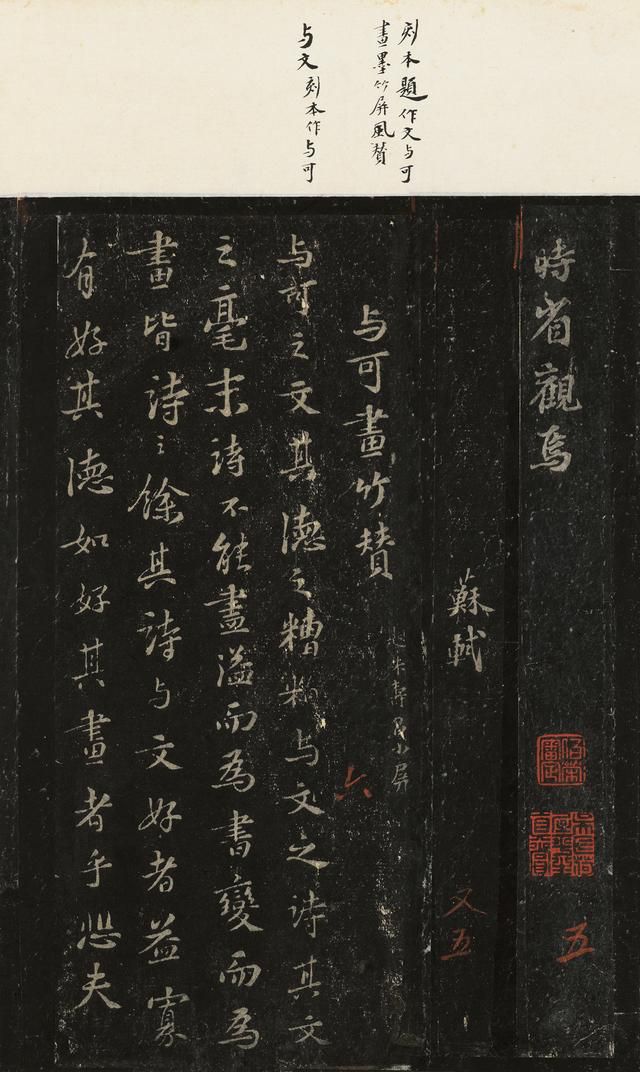 刻本題作文与可
畫墨竹屏風贊
与文刻本作与可
時省觀焉
五
蘇軾
又五
与可畫竹贊
小屏
六
与可之文其德之糟粕与文之詩其文
之毫末詩不能盡溢而為書變而為
畫皆詩之餘其詩与文好者益寡
有好其德如好其畫者乎悲夫